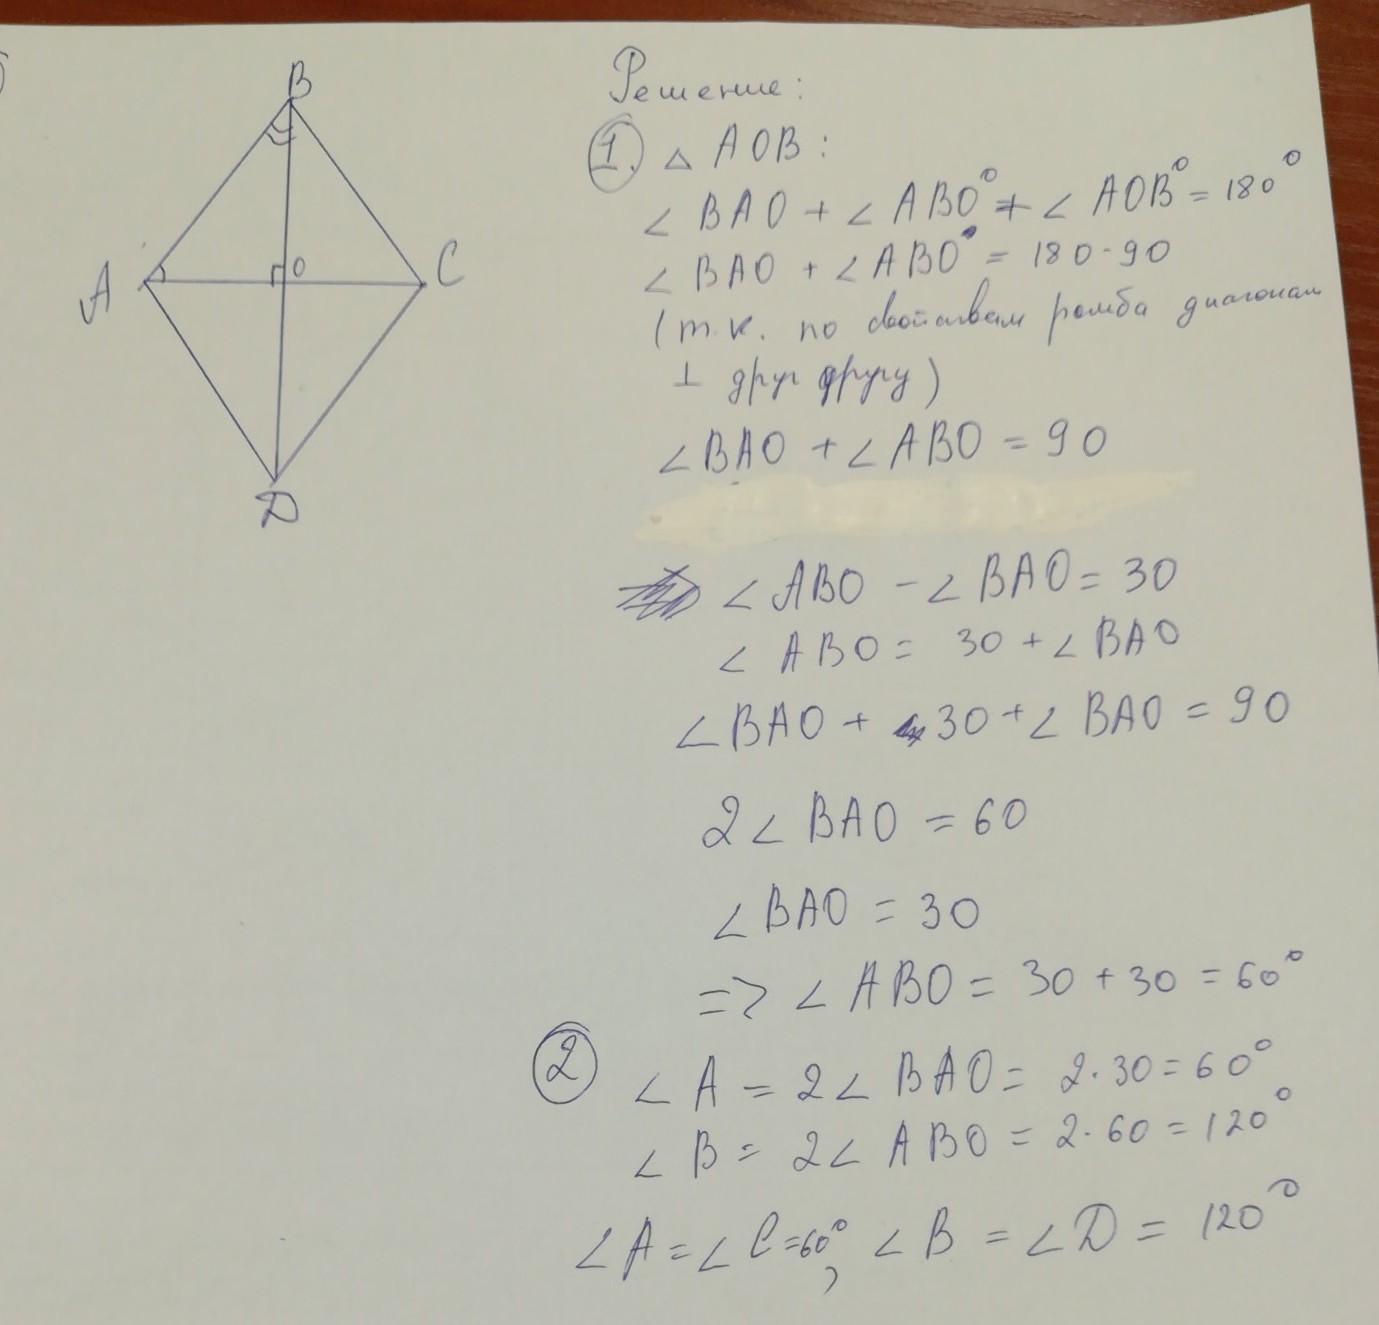 B
A
O
C
D
Решение:
1. △ AOB:
∠ BAO + ∠ ABO° + ∠ AOB° = 180°
∠ BAO + ∠ ABO° = 180-90
(т.к. по свойствам ромба диагонали
⊥ друг другу)
∠BAO + ∠ABO = 90
∠ ABO - ∠ BAO = 30
∠ ABO = 30 + ∠ BAO
∠BAO + 30 + ∠ BAO = 90
2∠ BAO = 60
∠BAO = 30
=> ∠ ABO = 30 + 30 = 60°
2 ∠ A = 2∠ BAO = 2·30 = 60°
∠ B = 2∠ ABO = 2·60 = 120°
∠A = ∠C = 60°, ∠B = ∠D = 120°